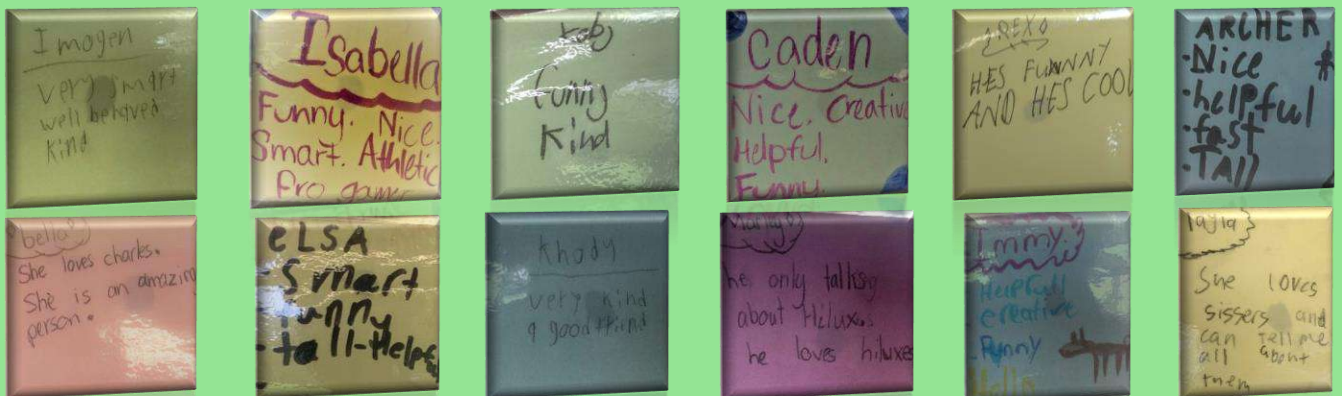 Imogen
very smart
well behaved
kind
Isabella
Funny. Nice.
Smart. Athletic
Pro gamer
Funny
Kind
Caden
Nice. Creative
Helpful.
Funny.
REXO
HES FUNNNY
AND HES COOL
ARCHER
·Nice
·helpful
·fast
·TAll
bella
She loves charks.
She is an amazing
person.
eLSA
-Smart
-funny
-tall-Helpf
Khody
very kind
a good friend
he only talks
about Hiluxes
he loves hiluxes
Immy.
Helpfull
creative
Funny
Hello
She loves
sissers and
can tell me
all about
them